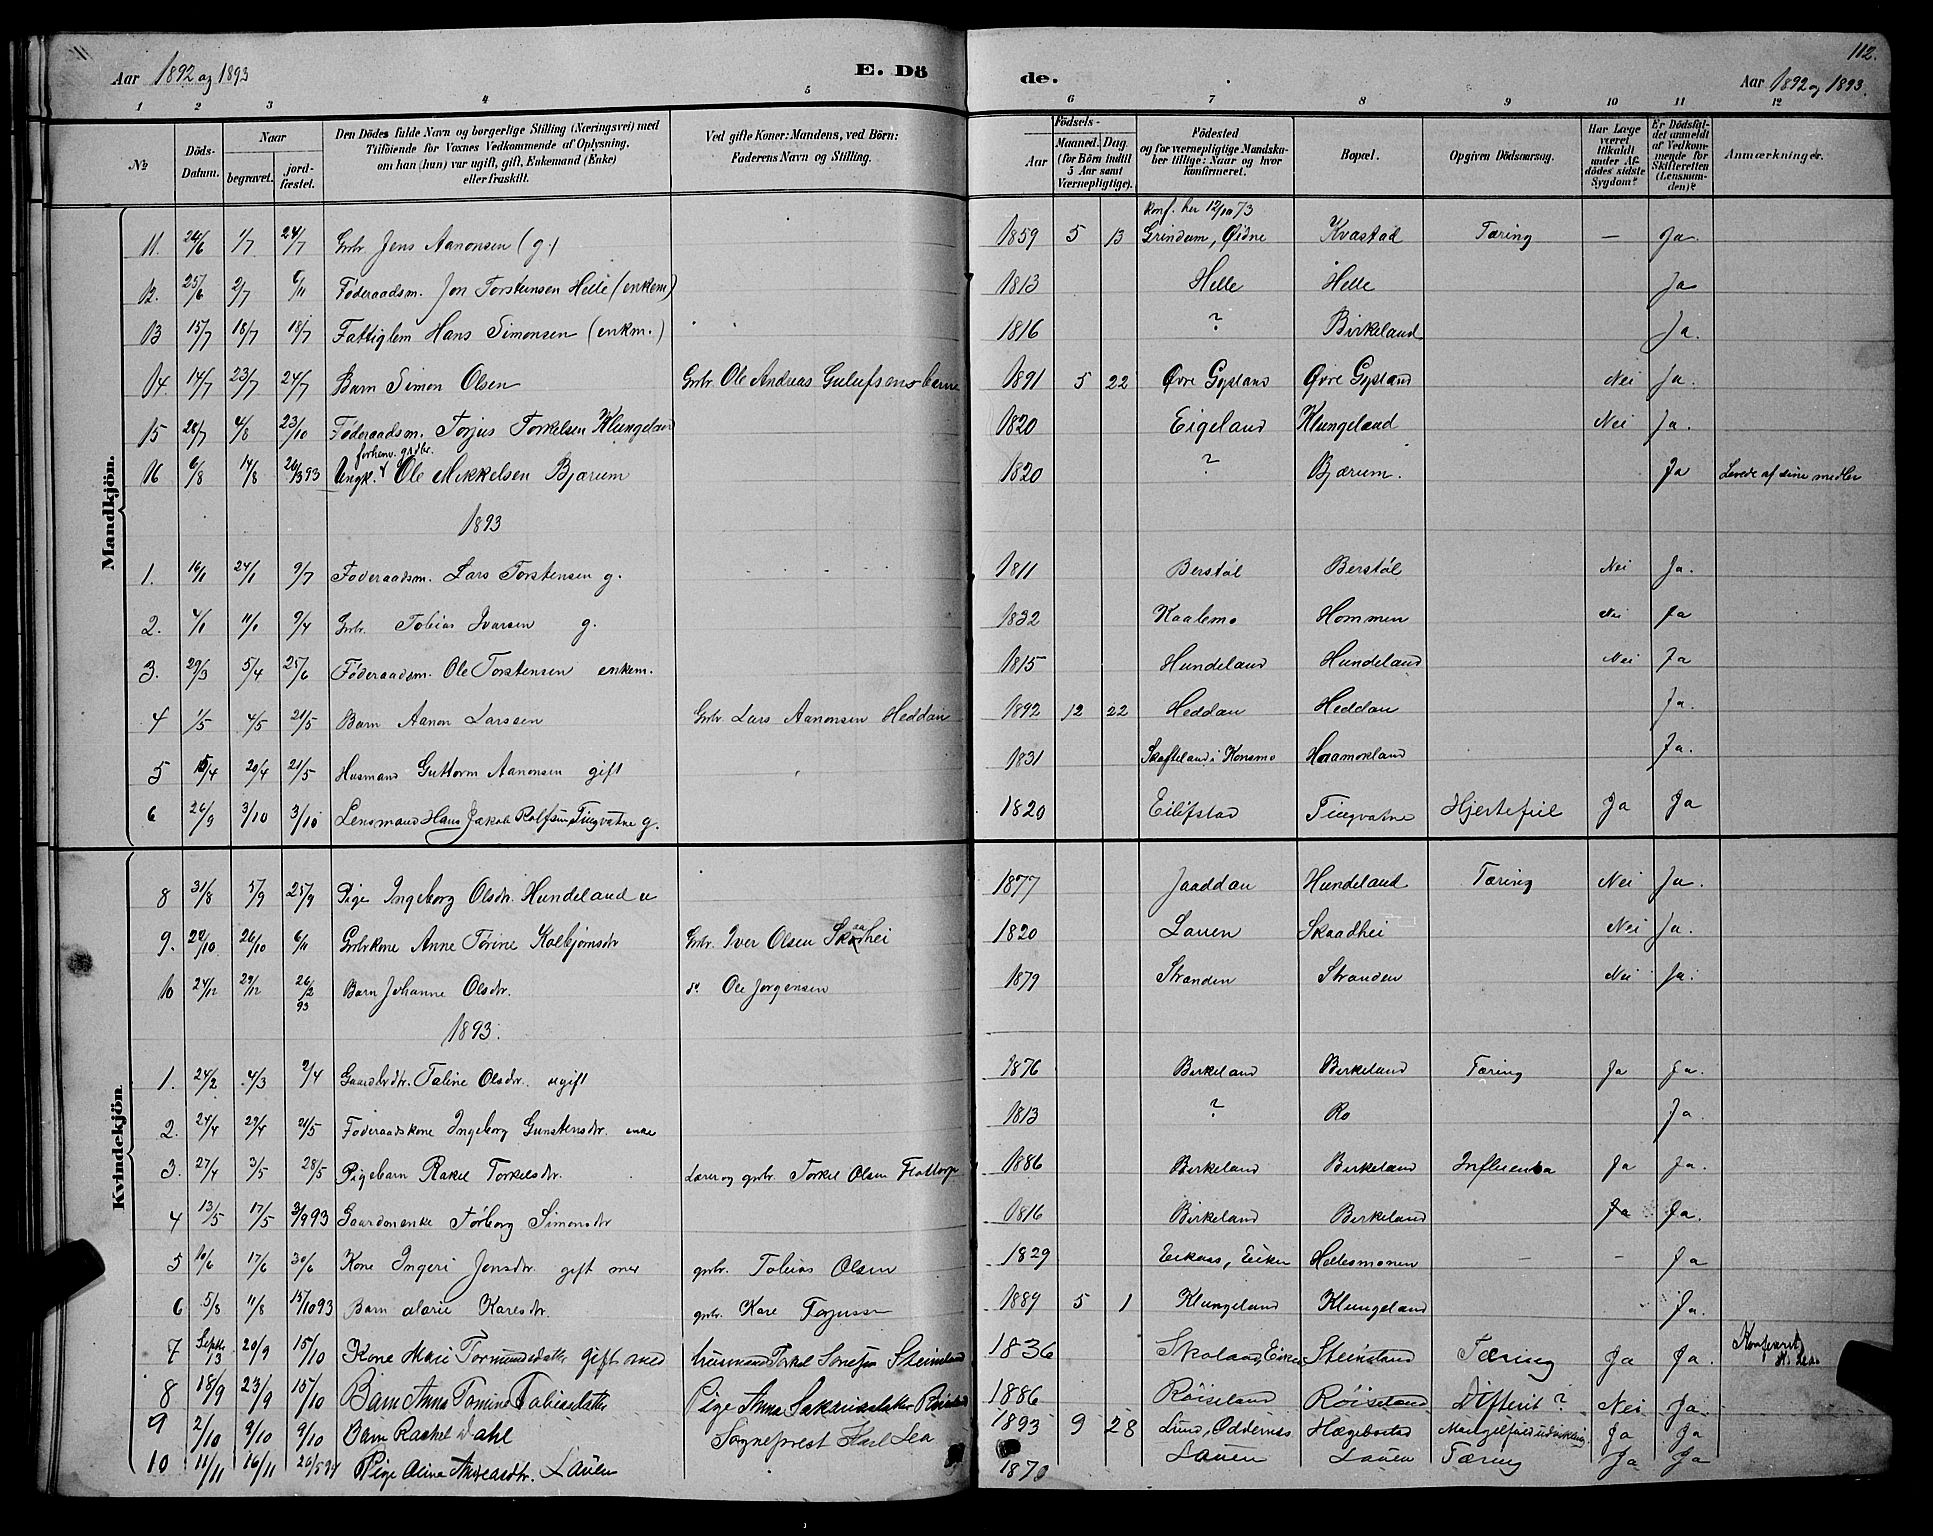 112.
Aar 1892 og 1893 E. Dö de. Aar 1892 og 1893.
1 2 3 4 5 6 7 8 9 10 11 12
№ Döds-Datum. Naar begravet. jord-fæstet. Den Dödes fulde Navn og borgerlige Stilling (Næringsvei) med Tilföiende for Voxnes Vedkommende af Oplysning, om han (hun) var ugift, gift, Enkemand (Enke) eller fraskilt. Ved gifte Koner: Mandens, ved Börn: Faderens Navn og Stilling. Födsels- Aar Maaned. Dag (for Börn indtil 5 Aar samt Værnepligtige). Födested og for værnepligtige Mandskaber tillige: Naar og hvor konfirmeret. Bopæl. Opgiven Dödsaarsag. Har Læge været tilkaldt under Afdödes sidste Sygdom? Er Dödsfaldet anmeldt af Vedkommende for Skifteretten (Lensmanden)? Anmærkninger.
Mandkjön.
konf. her 12/10 73
11. 26/6 1/7 24/7 Grbr. Jens Aanonsen (g.) 1859 5 13 Grindum, Øidne Kvastad Tæring — Ja.
12. 25/6 2/7 6/11 Føderaadsm. Jon Torstensen Helle (enkem) 1813 Helle Helle Ja
13 15/7 18/7 18/7 Fattiglem Hans Simonsen (enkm.) 1816 ? Birkeland Ja.
14. 14/7 23/7 24/7 Barn Simon Olsen Grbr. Ole Andreas Gulufsens barn 1891 5 22 Øvre Gysland Øvre Gysland Nei Ja.
15 28/7 4/8 23/10 Føderaadsm. Torjus Torkelsen Klungeland 1820 Eigeland Klungeland Nei Ja.
forhenv. grdbr.
16 6/8 14/8 26/3 93 Ungk. Ole Mikkelsen Bjærum 1820 ? Bjærum. Ja Levede af sine midler
1893
1. 16/1 24/1 9/7 Føderaadsm. Lars Torstensen g. 1811 Berstøl Berstøl Nei Ja.
2. 4/1 11/1 9/4 Grbr. Tobias Ivarsen g. 1832 Kaalemo Hommen Nei Ja
3. 29/3 5/4 25/6 Føderaadsm. Ole Torstensen enkem. 1815 Hundeland Hundeland Nei Ja
4 1/5 4/5 21/5 Barn Aanon Larssen Grbr. Lars Aanonsen Heddan 1892 12 22 Heddan Heddan Ja.
5 15/4 20/4 21/5 Husmand Guttorm Aanonsen gift 1831 Skofteland i Konsmo Haamokland Ja.
6 26/9 3/10 3/10 Lensmand Hans Jakob Rolfsen Tingvatne g. 1820 Eilifstad Tingvatne Hjertefeil Ja Ja
Kvindekjön.
8 31/8 5/9 25/9 Pige Ingeborg Olsdr. Hundeland u 1877 Jaaddan Hundeland Tæring Nei Ja.
9. 22/10 26/10 6/11 Grbrkone Anne Tørine Kolbjørnsdr Grbr. Iver Olsen Skaadhei 1820 Lauen Skaadhei Nei Ja.
10 24/12 29/12 26/2 93 Barn Johanne Olsdr. do Ole Jørgensen 1879 Stranden Stranden Nei Ja.
1893.
1. 24/2 4/3 2/4 Gaardbrdtr. Taline Olsdr. ugift 1876 Birkeland Birkeland Tæring Ja Ja.
2. 24/4 29/4 21/5 Føderaadskone Ingeborg Gunstensdr. enke 1813 ? Ro Ja.
3. 27/4 3/5 28/5 Pigebarn Rakel Torkelsdr. Lærer og grbr. Torkel Olsen Flottorp 1886 Birkeland Birkeland Influenza Ja Ja.
4 13/5 17/5 3/9 93 Gaardmenke Tørborg Simonsdr 1816 Birkeland Birkeland Ja Ja.
5 10/6 17/6 30/6 Kone Ingeri Jonsdr. gift med grbr. Tobias Olsen 1829 Eikaas, Eiken Hellesmonen — — Ja
6 5/8 11/8 15/10 93 Barn Marie Karesdr. grbr. Kare Torjussen 1889 5 1 Klungeland Klungeland Ja.
7 Septbr 13 20/9 15/10 Kone Mari Tormundsdatter gift med husmand Torkel Sorefsen Steinsland 1836 Skoland, Eiken Steinsland Tæring Ja Ja.
8 18/9 23/9 15/10 Barn Anna Tomine Tobiasdatter Pige Anna Sakariasdatter Røiseland 1886 Røiseland Røiseland Difterit? Nei Ja.
9 2/10 9/10 9/10 Barn Rachel Dahl Sogneprest Karl Lea 1893 9 28 Lund, Oddernes Hægebostad Mangelfuld udvikling. Ja Ja
10 11/11 16/11 20/5 94 Pige Oline Andreasdtr. Lauen 1870 Lauen Lauen Tæring Ja Ja